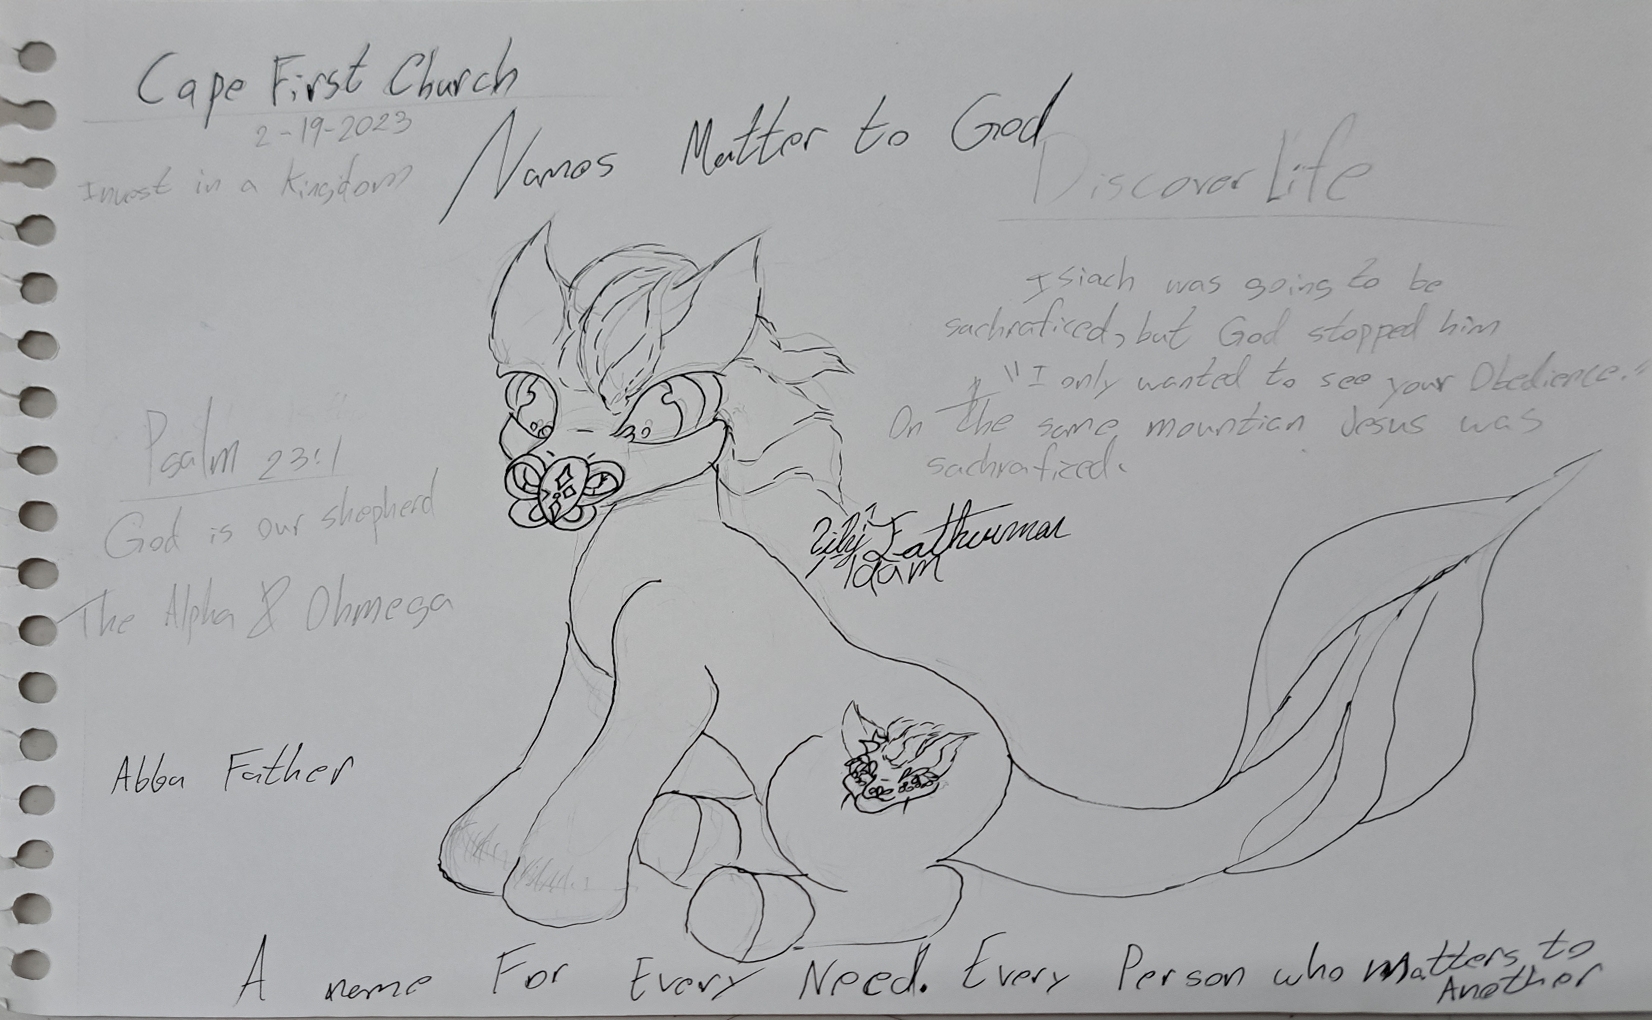 Cape First Church
2-19-2023
Invest in a Kingdom
Names Matter to God
Discover Life
Isiach was going to be
sachraficed, but God stopped him
"I only wanted to see your Obedience."
On the same mountian Jesus was
sachraficed.
Psalm 23:1
God is our shepherd
The Alpha & Ohmega
Abba Father
A name For Every Need. Every Person who matters to
Another